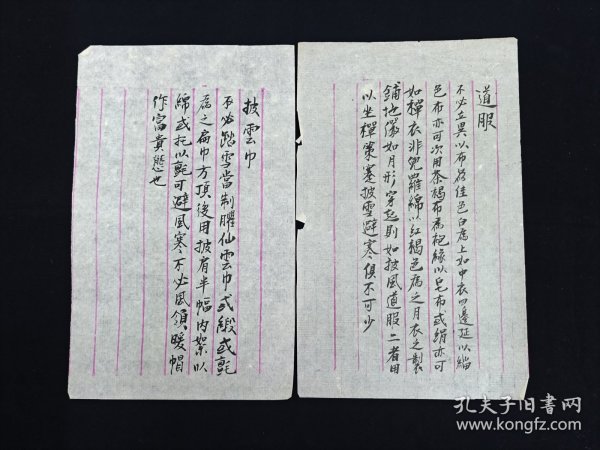 道服
不必立異以布爲佳色白爲上如中衣四邊延以緇
色布亦可次用茶褐布爲袍緣以皂布或絹亦可
如禪衣非兜羅綿以紅褐色爲之月衣之製
鋪地儼如月形穿起則如披風道服二者用
以坐禪策蹇披雪避寒俱不可少
披雲巾
不必踏雪當制臞仙雲巾或緞或氈
爲之扁巾方頂後用披肩半幅內絮以
綿或托以氈可避風寒不必風領暖帽
作富貴態也
孔夫子旧书网
www.kongfz.com